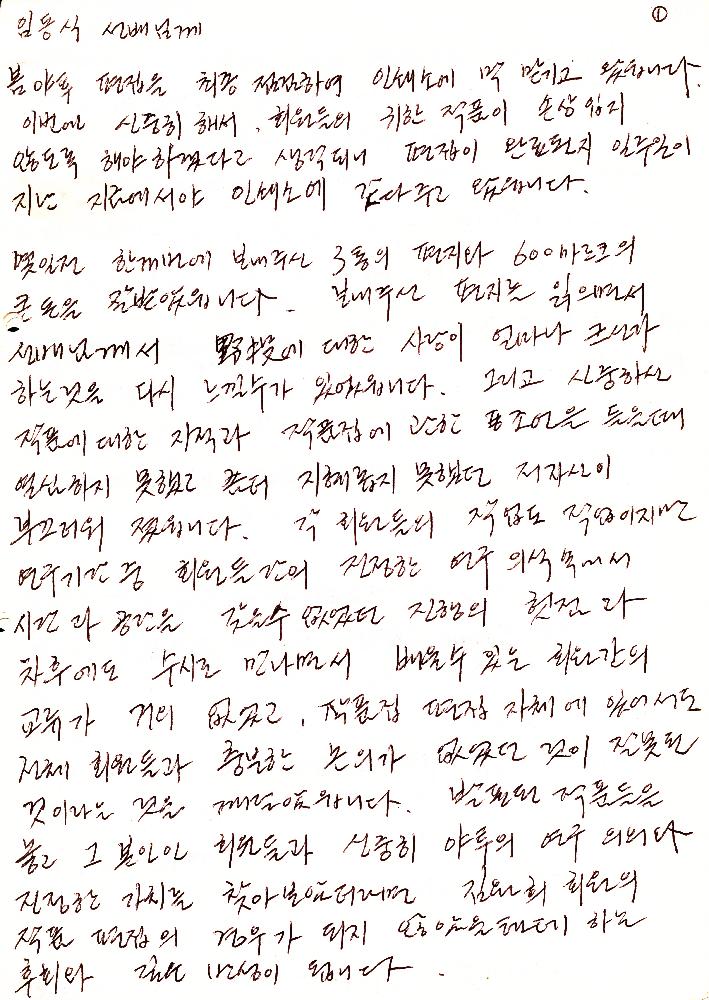 ①
임동식 선배님께
봄야투 편집을 최종 점검하여 인쇄소에 막 맏기고 왔읍니다.
이번엔 신중히 해서, 회원들의 귀한 작품이 손상되지
않도록 해야 하겠다고 생각되니 편집이 완료된지 일주일이
지난 지금에서야 인쇄소에 갖다주고 왔읍니다.
몇일전 한꺼번에 보내주신 3통의 편지와 600마르크의
큰 돈을 잘받았읍니다. 보내주신 편지는 읽으면서
선배님께서 野投에 대한 사랑이 얼마나 크신가
하는것을 다시 느낄수가 있었읍니다. 그리고 신중하신
작품에 대한 지적과 작품집에 관한 조언을 들을때
열심하지 못했고 좀더 지혜롭지 못했던 저자신이
부끄러워 졌읍니다. 각 회원들의 작업도 작업이지만
연구기간 중 회원들간의 진정한 연구 의식 속에서
시간과 공간을 갖을수 없었던 진행의 헛점과
차후에도 수시로 만나면서 배울수 있는 회원간의
교류가 거의 없었고, 작품집 편집 자체에 있어서도
전체 회원들과 충분한 문의가 없었던 것이 잘못된
것이라는 것을 깨달았읍니다. 발표된 작품들을
놓고 그 본인인 회원들과 신중히 야투의 연구 의의와
진정한 가치는 찾아보았더라면 전원희 회원의
작품 편집의 경우가 되지 않았을텐데 하는
후회와 깊은 반성이 됩니다.